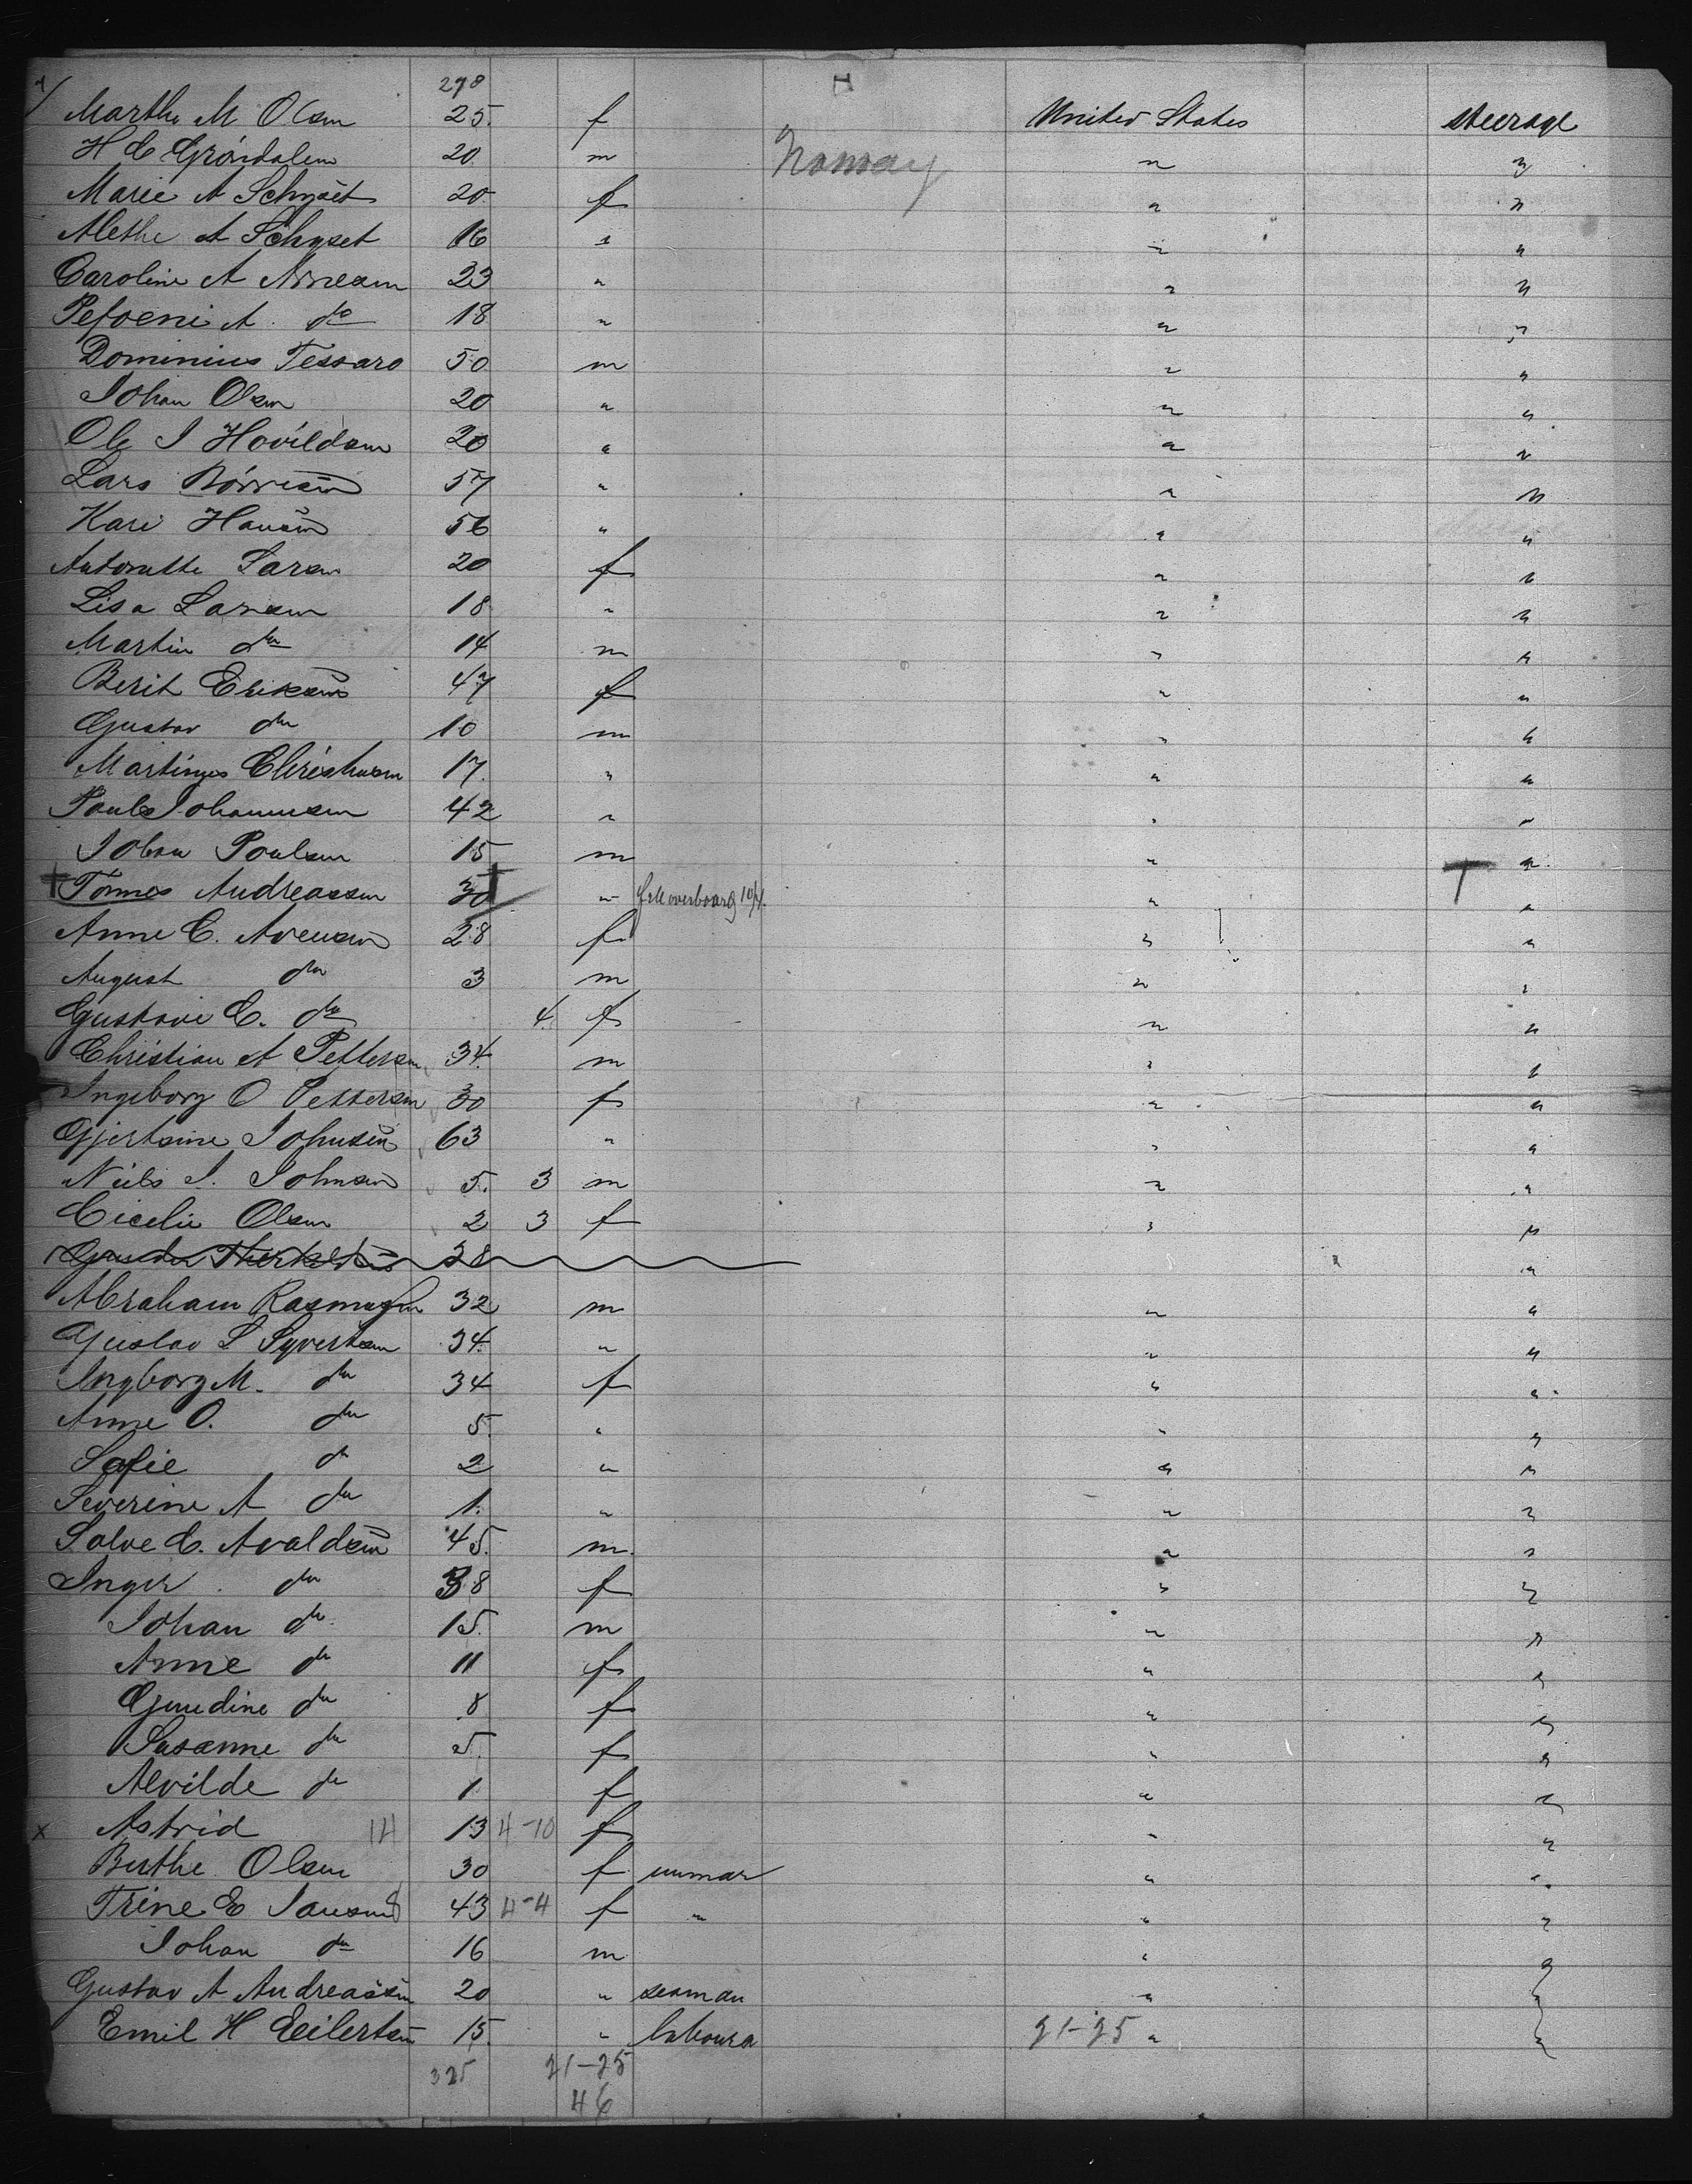 278
Marthe M Olsen 25. f United States steerage
H C Gröndalen 20 m Norway " "
Marie A Schyset 20 f " "
Alethe A Schyset 16 " " "
Caroline A Arnesen 23 " " "
A. do 18 " " "
Dominius Tessaro 50 m " "
Johan Olsen 20 " " "
Ole J Hovildsen 20 " " "
Lars 57 " " "
Kari Hansen 56 " " "
Larsen 20 f " "
Lisa Larsen 18 " " "
Martin do 14 m " "
Berit Eriksen 47 f " "
Gustav do 10 m " "
Martinus Christensen 17. " " "
Paul Johannesen 42 " " "
Johan Poulsen 15 m " "
+ Tonnes Andreassen 30 " fell overboard 10/4. " T "
Anne C. Avensen 28 f " "
August do 3 m " "
Gustave C. do 4. f " "
Christian A Pettersen 34. m " "
Ingeborg O Pettersen 30 f " "
Gjertsine Johnsen 63 " " "
Niels J. Johnsen 5. 3 m " "
Cicelie Olsen 2 3 f " "
28 "
Abraham Rasmussen 32 m " "
Gustav S Syvertsen 34. " " "
Ingborg M. do 34 f " "
Anne O. do 5. " " "
Sofie do 2 " " "
Severine A do 1. " " "
Salve C. Avaldsen 45. m. " "
Inger. do 38 f " "
Johan do 15. m " "
Anne do 11 f " "
Gundine do 8 f " "
Susanne do 5. f " "
Alvilde do 1 f " "
x Astrid 14 13 4-10 f " "
Berthe Olsen 30 f " "
Trine E Jansen 43 4-4 f " " "
Johan do 16 m " "
Gustav A Andreassen 20 " seaman " "
Emil H Eilertsen 15. " laboura 21-25 " "
325 21-25
46